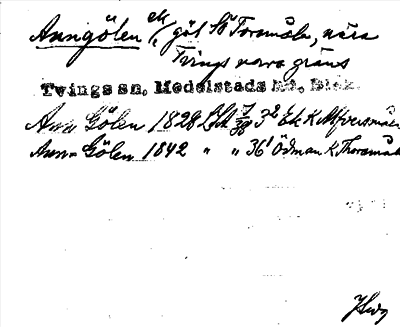 Anngölen ek / göl SÖ Toromåla, nära
Tvings norra gräns
Tvings sn, Medelstads hd, Blek.
Ann Gölen 1828 LSA 7/38 3² Ek K
Ann Gölen 1842 " " 36¹ Ödman K Thoromåla